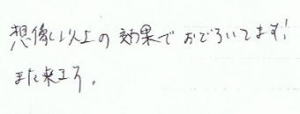 想像以上の効果でおどろいてます!
また来ます。